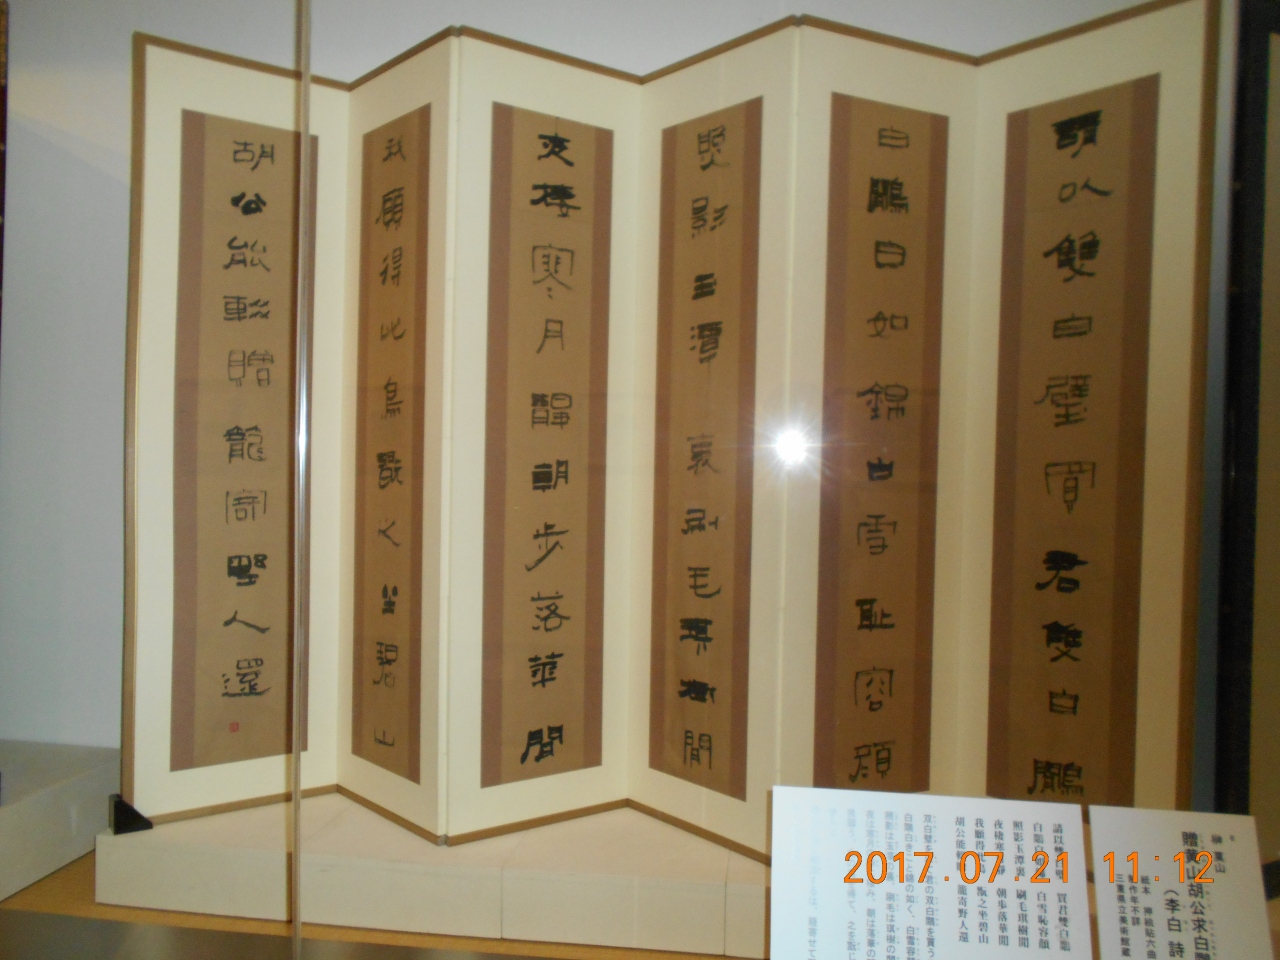 請以雙白璧買君雙白鷴
白鷴白如錦白雪恥容顔
照影玉潭裏刷毛琪樹間
夜棲寒月靜朝步落華閒
我願得此鳥翫之坐碧山
胡公能輟贈籠寄野人還
榊 莫山
贈黄山胡公求白鷴
(李白 詩
紙本
制作年不詳
三重県立美術館蔵
請以雙白璧 買君雙白鷴
白鷴白 白雪恥容顔
照影玉潭裏 刷毛琪樹間
夜棲寒 靜 朝步落華閒
我願得 翫之坐碧山
胡公能 籠寄野人還
双白璧を 君の双白鷴を買う
2017.07.21 11:12